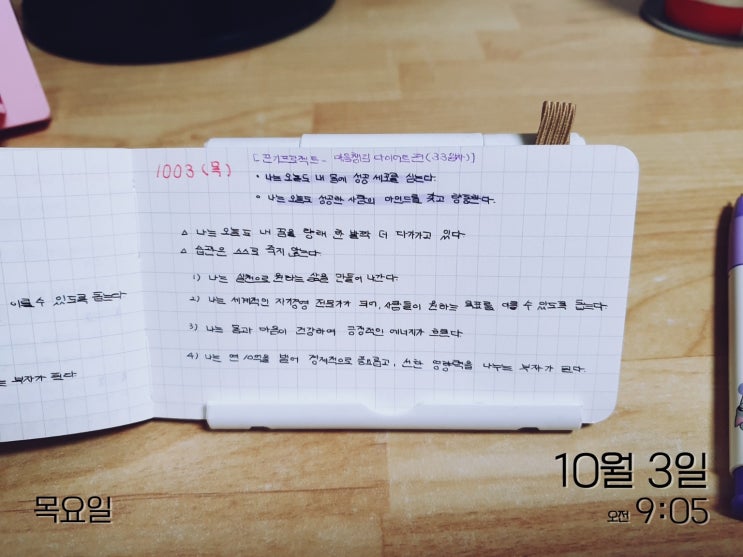 이룰 수 있도록 돕는다
는 부자가 된다
1003 (목)
[끈기프로젝트 - 마음챙김 다이어트편 (33일차)]
• 나는 오늘도 내 몸에 성공 세포를 심는다.
• 나는 오늘도 성공한 사람의 마인드를 갖고 행동한다.
△ 나는 오늘도 내 꿈을 향해 한 발짝 더 다가가고 있다
△ 습관은 스스로 죽지 않는다
1) 나는 실천으로 원하는 삶을 만들어 나간다
2) 나는 세계적인 자기경영 전문가가 되어, 사람들이 원하는 목표를 이룰 수 있도록 돕는다
3) 나는 몸과 마음이 건강하여 긍정적인 에너지가 흐른다
4) 나는 연 10억을 벌어 경제적으로 풍요롭고, 선한 영향력을 나누는 부자가 된다.
10월 3일
목요일
오전 9:05